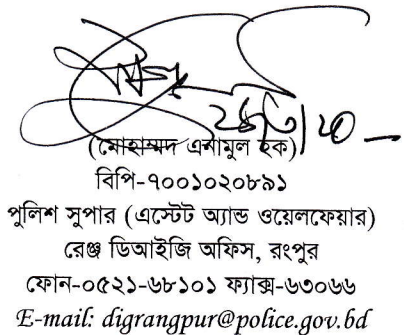 (মোহাম্মদ এনামুল হক)
বিপি-৭০০১০২০৮৯১
পুলিশ সুপার (এস্টেট অ্যান্ড ওয়েলফেয়ার)
রেঞ্জ ডিআইজি অফিস, রংপুর
ফোন-০৫২১-৬৮১০১ ফ্যাক্স-৬৩০৬৬
E-mail: digrangpur@police.gov.bd